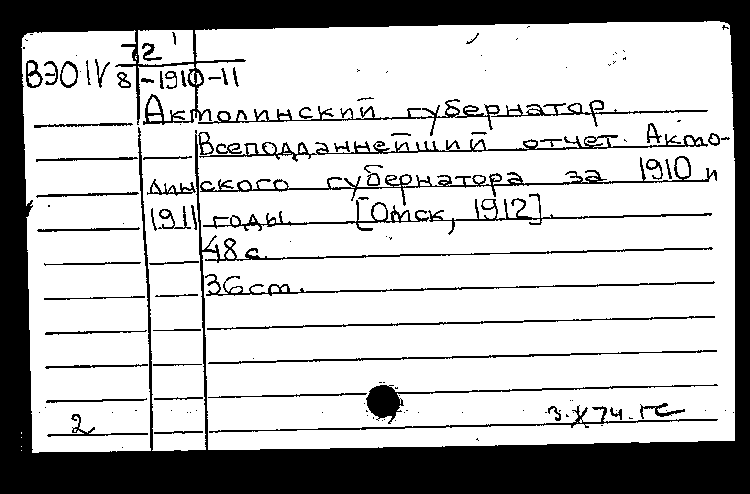 72
ВЭО IV 8-1910-11
Актолинский губернатор.
Всеподданнейший отчет Акто-
линского губернатора за 1910 и
1911 годы. [Омск, 1912].
48 с.
36 ст.
2 3.X 74. ГС